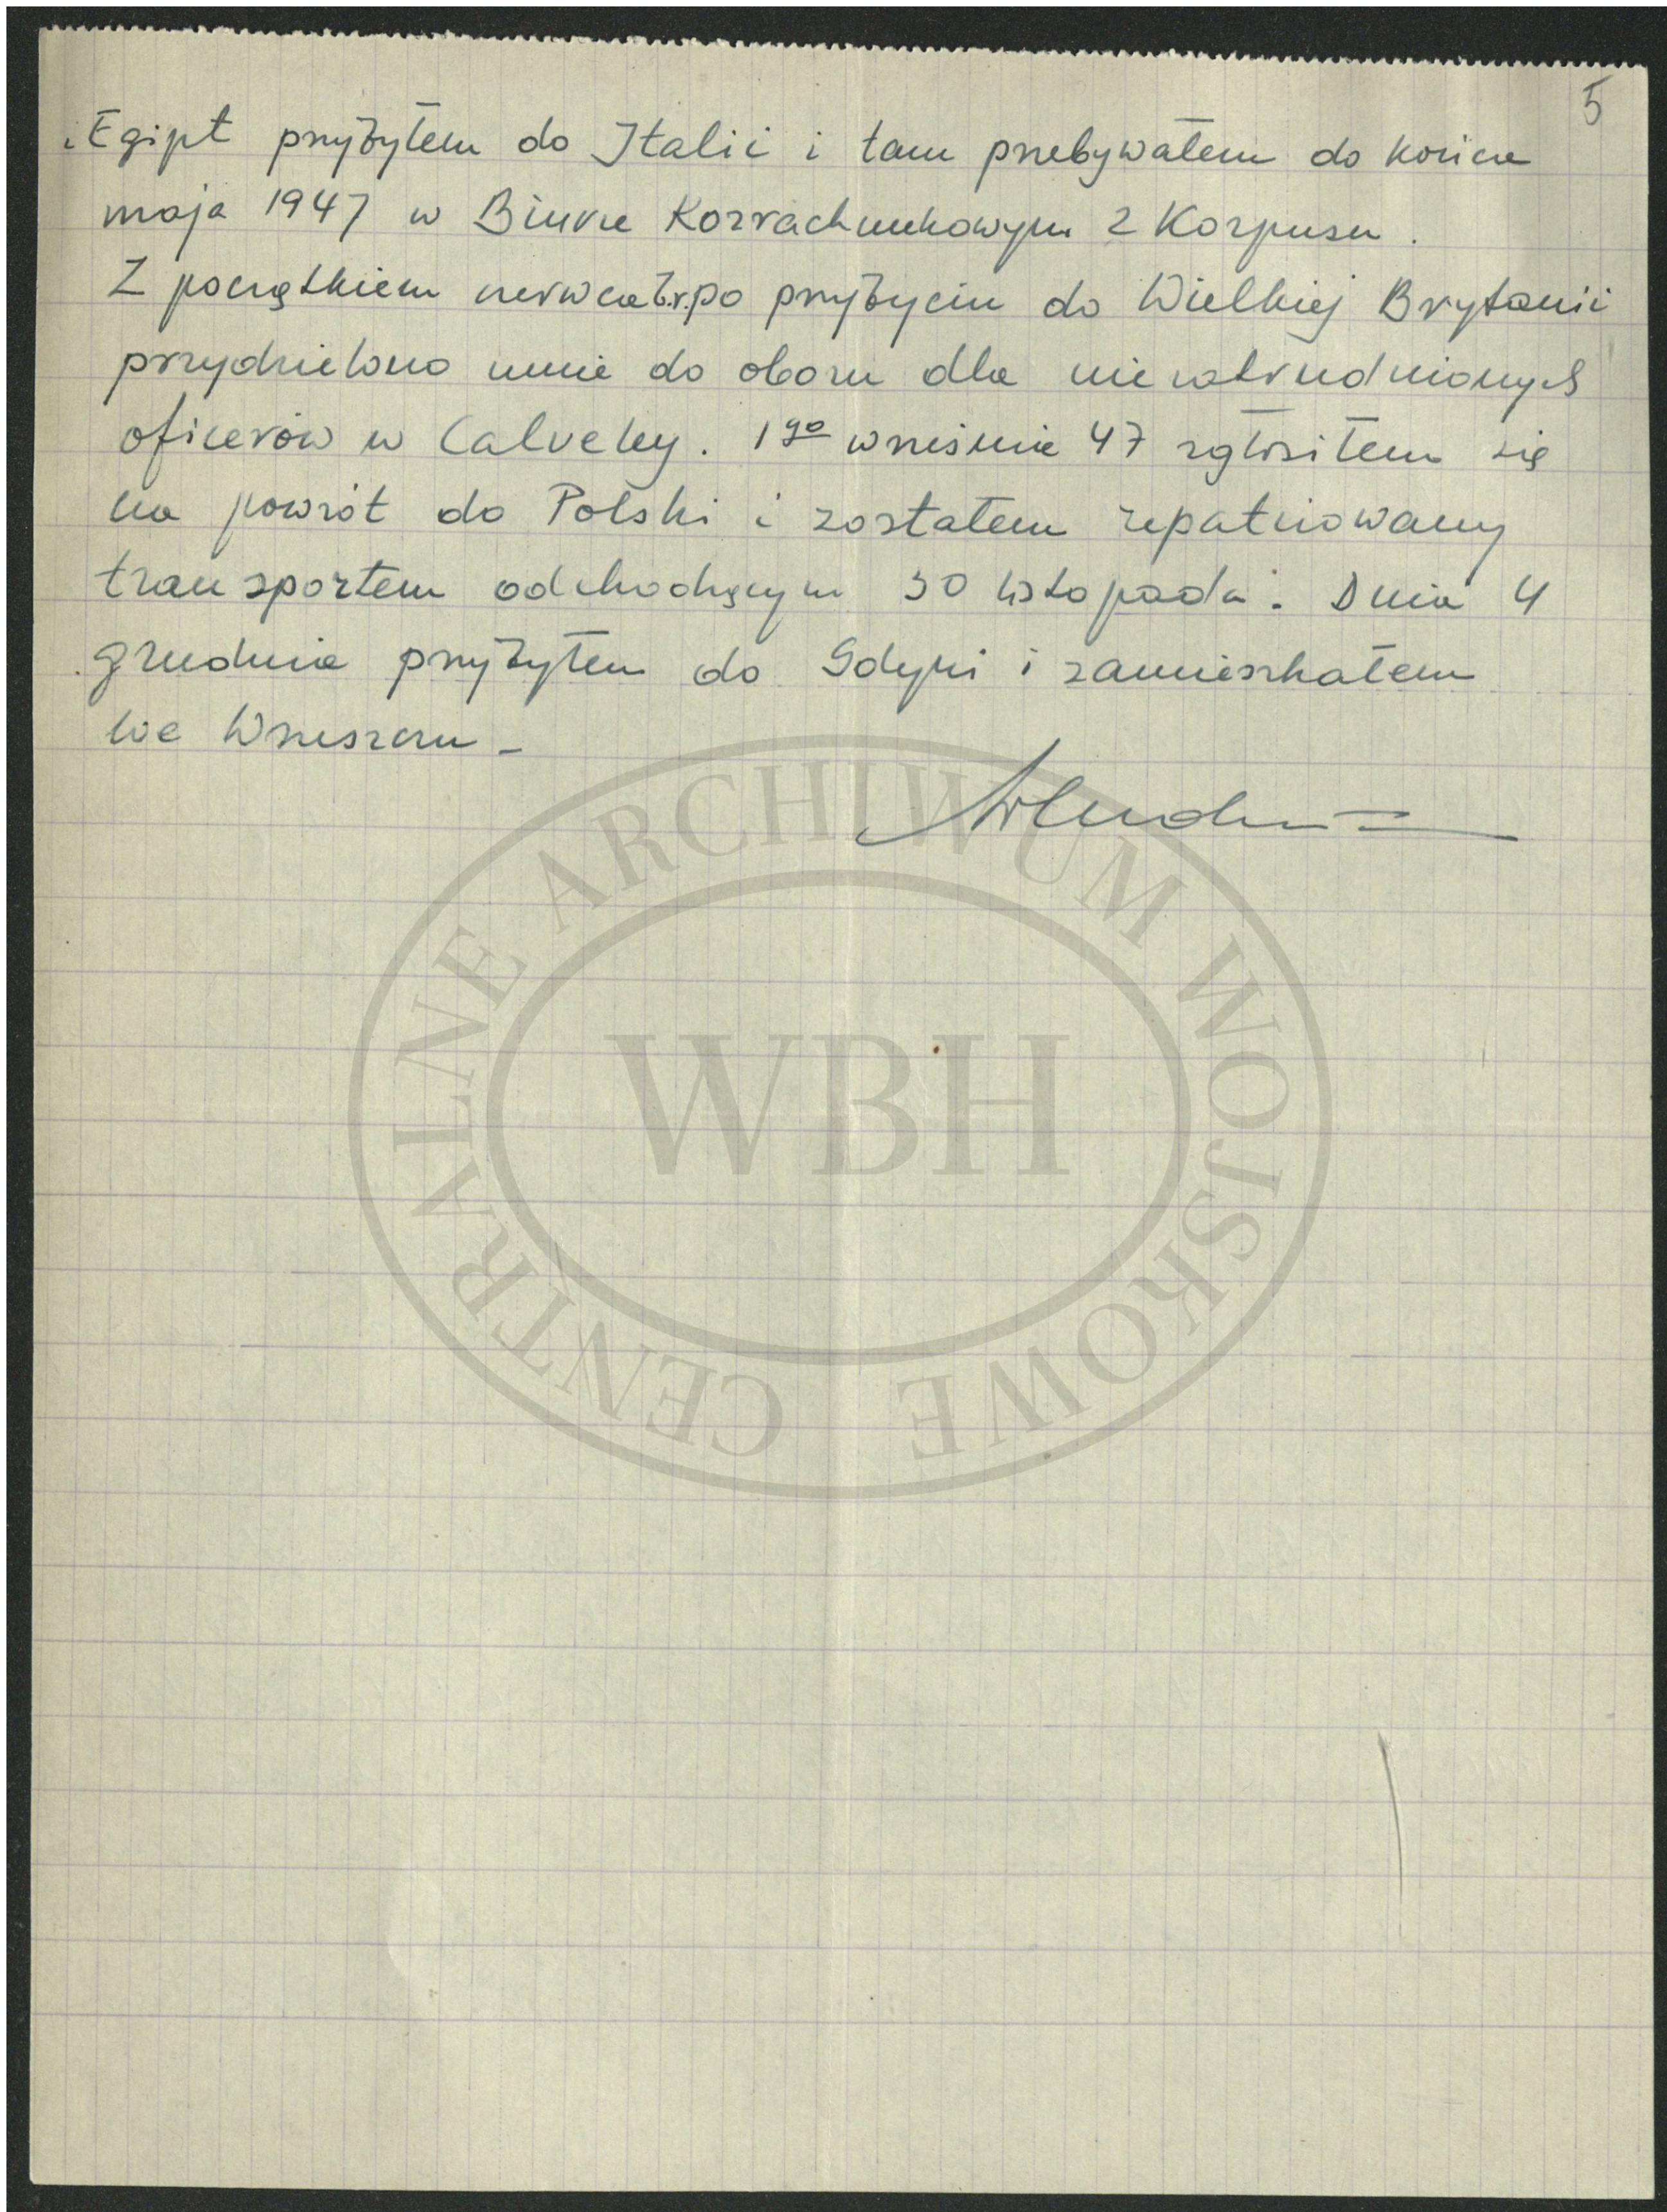 5
i Egipt przybyłem do Italii i tam przebywałem do końca
maja 1947 w Biurze Rozrachunkowym 2 Korpusu.
Z początkiem czerwca b.r. po przybyciu do Wielkiej Brytanii
przydzielono mnie do obozu dla niezatrudnionych
oficerów w Calveley. 1go września 47 zgłosiłem się
na powrót do Polski i zostałem repatriowany
transportem odchodzącym 30 listopada. Dnia 4
grudnia przybyłem do Gdyni i zamieszkałem
we Wrzeszczu -
CENTRALNE ARCHIWUM WOJSKOWE
WBH